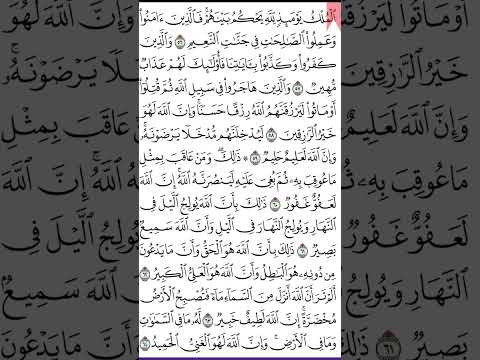 ٱلْمُلْكُ يَوْمَئِذٍ لِّلَّهِ يَحْكُمُ بَيْنَهُمْ فَٱلَّذِينَ ءَامَنُوا۟
وَعَمِلُوا۟ ٱلصَّـٰلِحَـٰتِ فِى جَنَّـٰتِ ٱلنَّعِيمِ ٥٦ وَٱلَّذِينَ
كَفَرُوا۟ وَكَذَّبُوا۟ بِـَٔايَـٰتِنَا فَأُو۟لَـٰٓئِكَ لَهُمْ عَذَابٌ
مُّهِينٌ ٥٧ وَٱلَّذِينَ هَاجَرُوا۟ فِى سَبِيلِ ٱللَّهِ ثُمَّ قُتِلُوٓا۟
أَوْ مَاتُوا۟ لَيَرْزُقَنَّهُمُ ٱللَّهُ رِزْقًا حَسَنًا ۚ وَإِنَّ ٱللَّهَ لَهُوَ
خَيْرُ ٱلرَّٰزِقِينَ ٥٨ لَيُدْخِلَنَّهُم مُّدْخَلًا يَرْضَوْنَهُۥ ۗ
وَإِنَّ ٱللَّهَ لَعَلِيمٌ حَلِيمٌ ٥٩ ۞ ذَٰلِكَ ۖ وَمَنْ عَاقَبَ بِمِثْلِ
مَا عُوقِبَ بِهِۦ ثُمَّ بُغِىَ عَلَيْهِ لَيَنصُرَنَّهُ ٱللَّهُ ۗ إِنَّ ٱللَّهَ
لَعَفُوٌّ غَفُورٌ ٦٠ ذَٰلِكَ بِأَنَّ ٱللَّهَ يُولِجُ ٱلَّيْلَ فِى
ٱلنَّهَارِ وَيُولِجُ ٱلنَّهَارَ فِى ٱلَّيْلِ وَأَنَّ ٱللَّهَ سَمِيعٌۢ
بَصِيرٌ ٦١ ذَٰلِكَ بِأَنَّ ٱللَّهَ هُوَ ٱلْحَقُّ وَأَنَّ مَا يَدْعُونَ
مِن دُونِهِۦ هُوَ ٱلْبَـٰطِلُ وَأَنَّ ٱللَّهَ هُوَ ٱلْعَلِىُّ ٱلْكَبِيرُ ٦٢
أَلَمْ تَرَ أَنَّ ٱللَّهَ أَنزَلَ مِنَ ٱلسَّمَآءِ مَآءً فَتُصْبِحُ ٱلْأَرْضُ
مُخْضَرَّةً ۗ إِنَّ ٱللَّهَ لَطِيفٌ خَبِيرٌ ٦٣ لَّهُۥ مَا فِى ٱلسَّمَـٰوَٰتِ
وَمَا فِى ٱلْأَرْضِ ۗ وَإِنَّ ٱللَّهَ لَهُوَ ٱلْغَنِىُّ ٱلْحَمِيدُ ٦٤